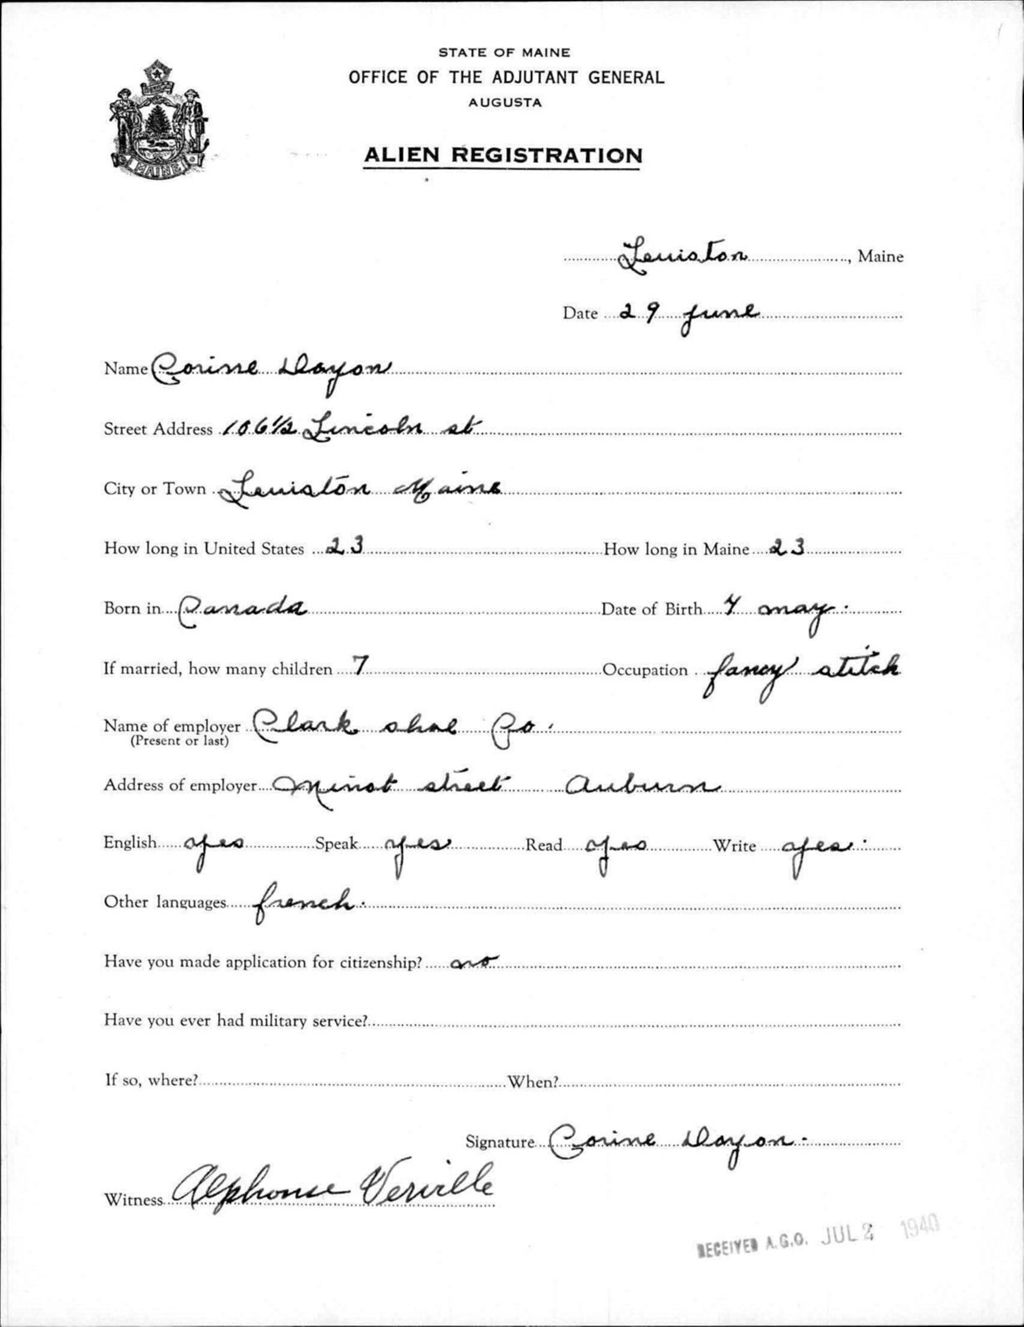 STATE OF MAINE
OFFICE OF THE ADJUTANT GENERAL
AUGUSTA
ALIEN REGISTRATION
MAINE
Lewiston, Maine
Date 29 june
Name Corine Doyon
Street Address 106 1/2 Lincoln st
City or Town Lewiston Maine
How long in United States 23 How long in Maine 23
Born in Canada Date of Birth 7 may.
If married, how many children 7 Occupation fancy stitch
Name of employer Clark shoe Co.
(Present or last)
Address of employer Minot street Auburn
English yes Speak yes Read yes Write yes.
Other languages french.
Have you made application for citizenship? no
Have you ever had military service?
If so, where? When?
Signature Corine Doyon.
Witness Alphonse Verville
RECEIVED A.G.O. JUL 2 1940